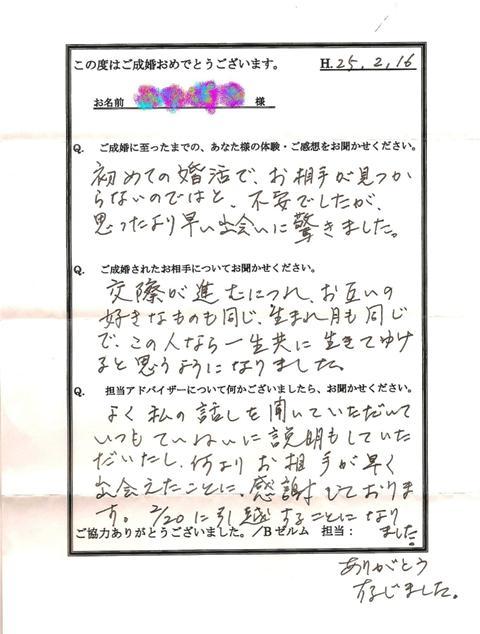 この度はご成婚おめでとうございます。
H. 25. 2. 16
お名前 様
Q. ご成婚に至ったまでの、あなた様の体験・ご感想をお聞かせください。
初めての婚活で、お相手が見つか
らないのではと、不安でしたが、
思ったより早い出会いに驚きました。
Q. ご成婚されたお相手についてお聞かせください。
交際が進むにつれ、お互いの
好きなものも同じ、生まれ月も同じ
で、この人なら一生共に生きてゆけ
ると思うようになりました。
Q. 担当アドバイザーについて何かございましたら、お聞かせください。
よく私の話しを聞いていただいて
いつもていねいに説明もしていた
だいたし、何よりお相手が早く
出会えたことに、感謝しておりま
す。2/20に引越することになり
ました。
ご協力ありがとうございました。/Bゼルム 担当：
ありがとう
存じました。